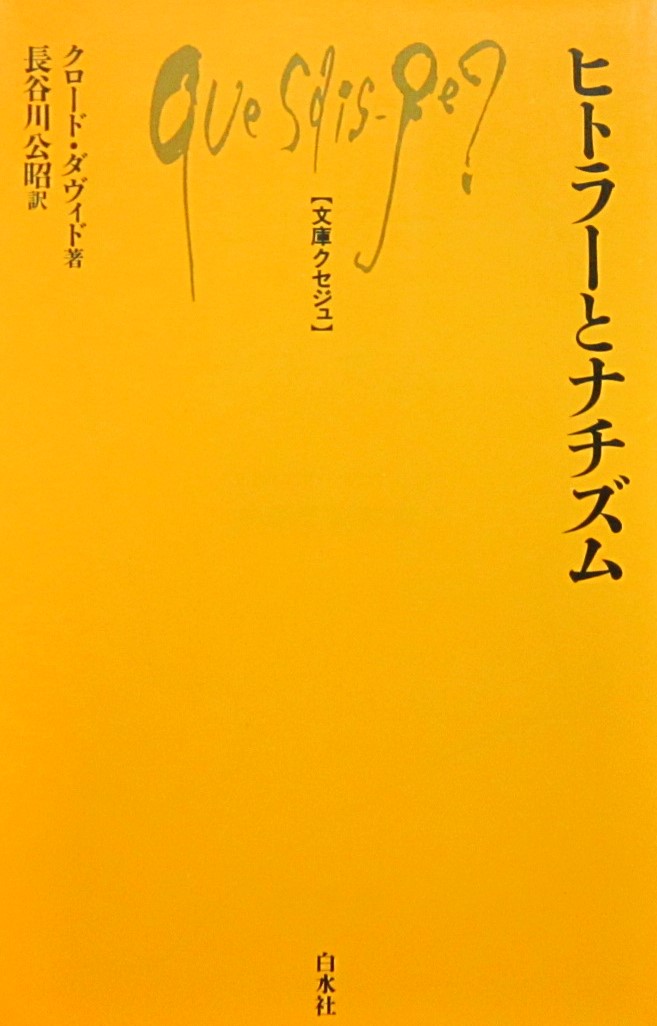 ヒトラーとナチズム
Que sais-je?
【文庫クセジュ】
クロード・ダヴィド著
長谷川公昭訳
白水社